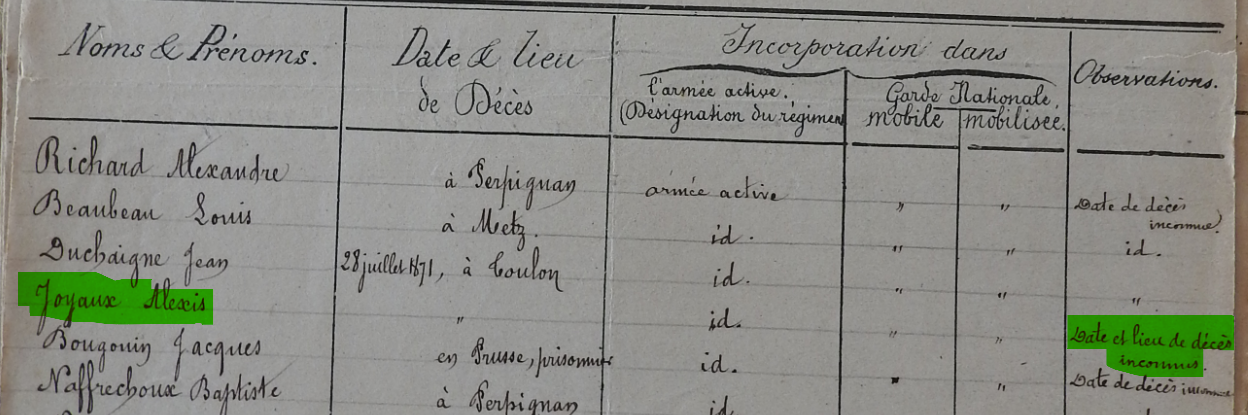 Noms & Prénoms.
Date & lieu
de Décès
Incorporation dans
l'armée active.
(Désignation du régiment
Garde Nationale
mobile
mobilisée.
Observations.
Richard Alexandre à Perpignan armée active " " Date de décès
inconnue.
Beaubeau Louis à Metz. id. " " id.
Duchaigne Jean 28 juillet 1871, à Toulon id. " " "
Joyaux Alexis " id. " " Date et lieu de décès
inconnus.
Bougouin Jacques en Prusse, prisonnier id. " " Date de décès inconnue
Naffrechoux Baptiste à Perpignan id.